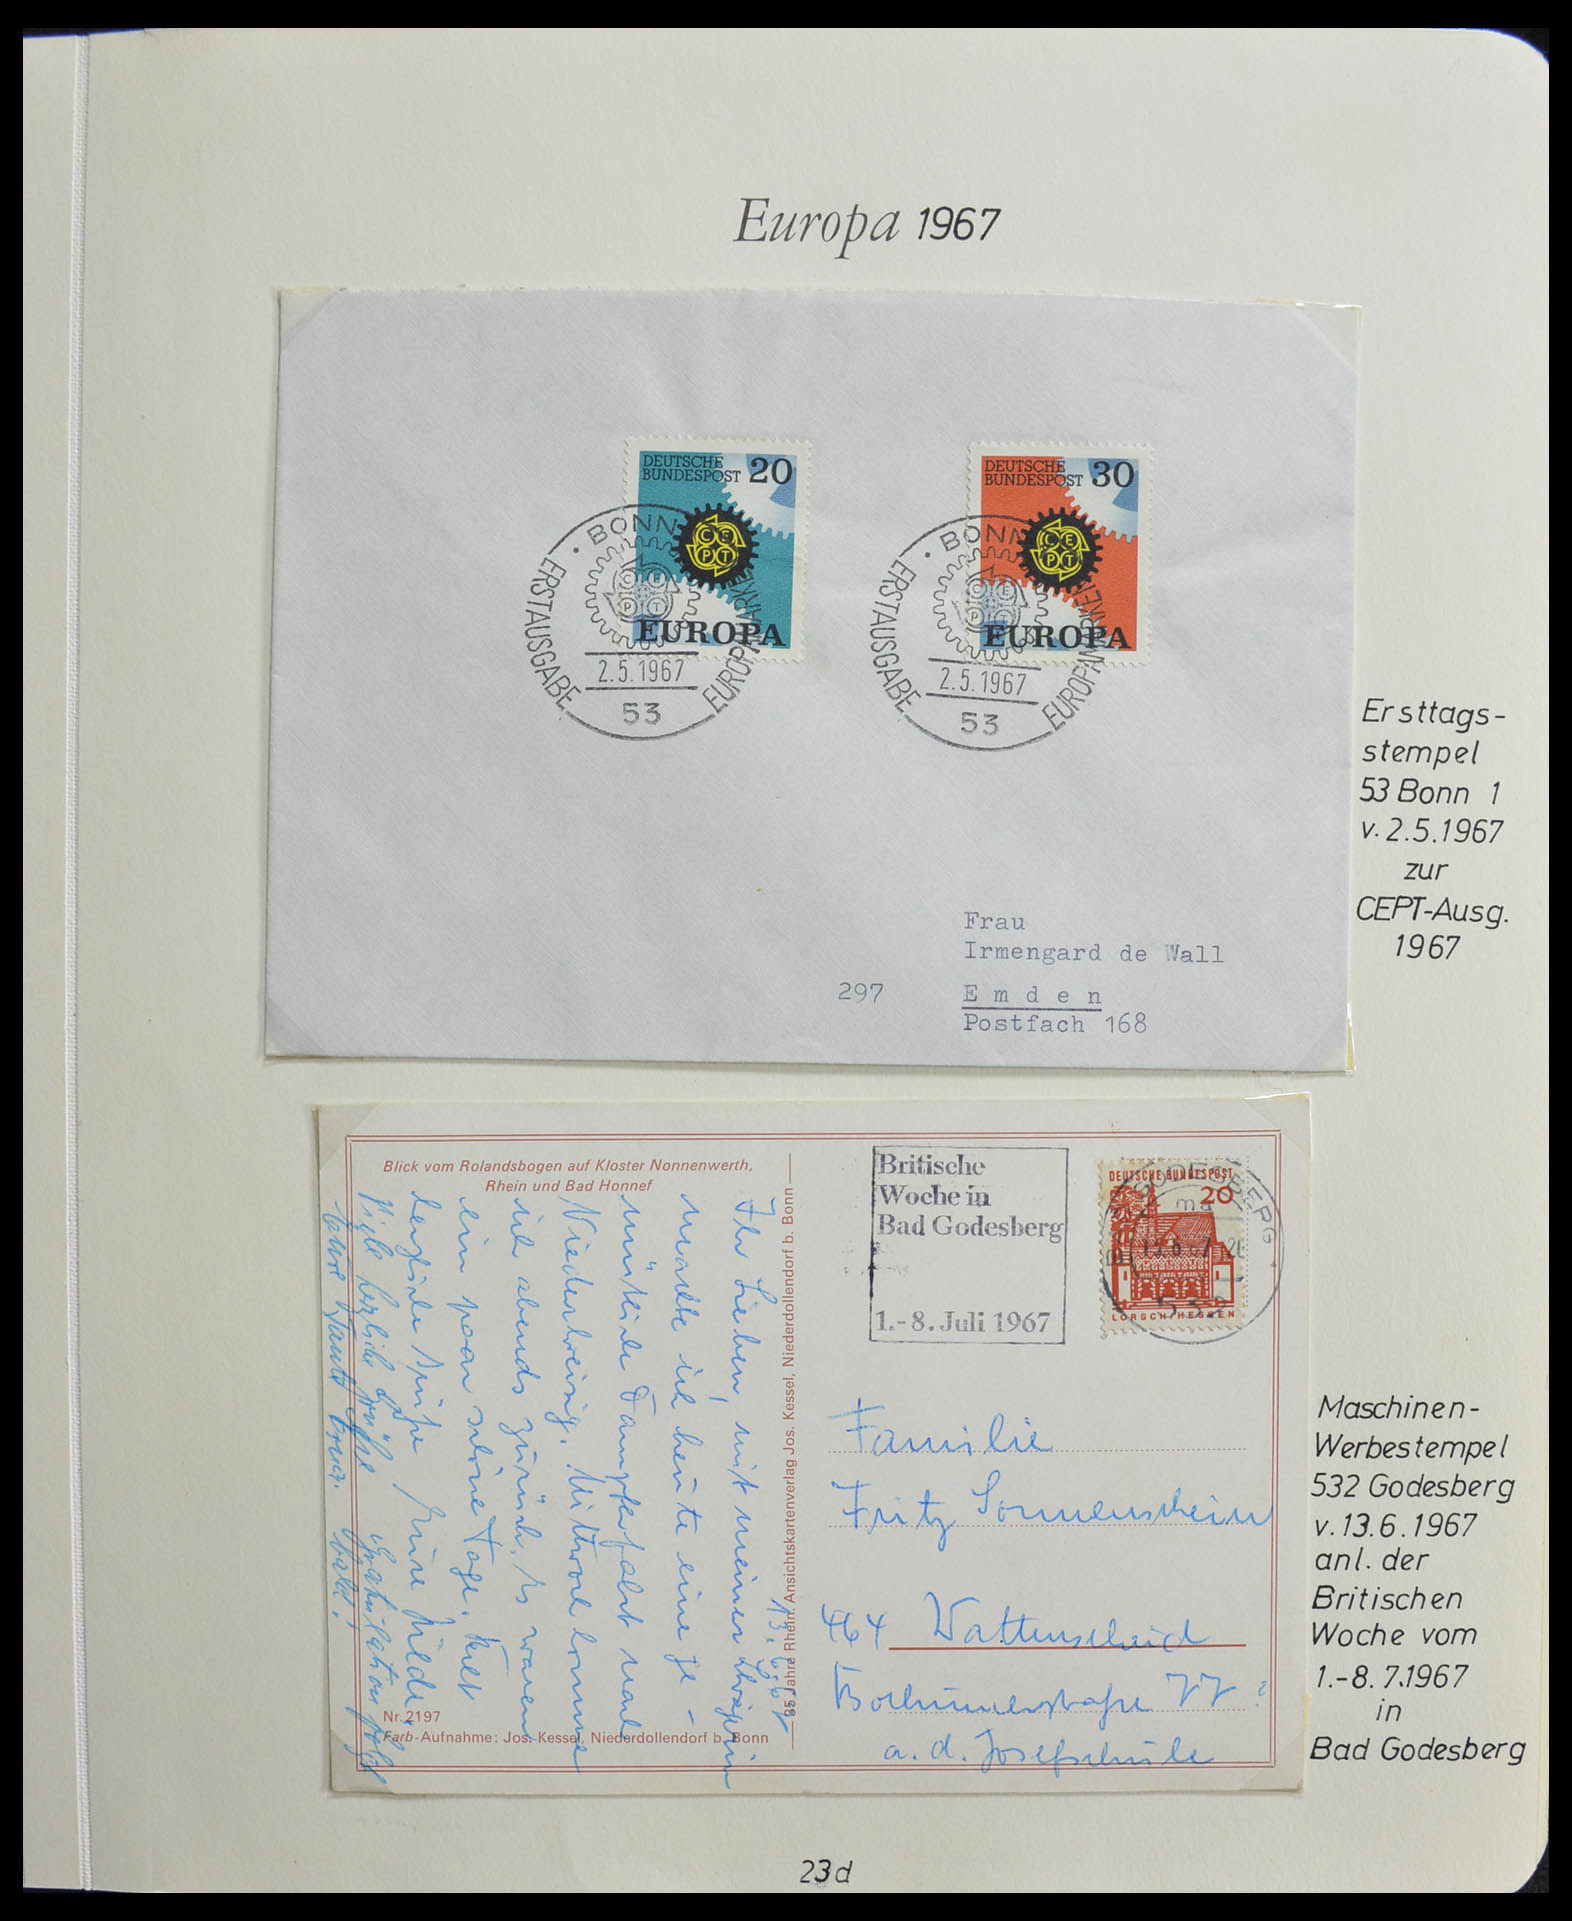 Europa 1967
DEUTSCHE
BUNDESPOST 20
CEPT
EUROPA
BONN
ERSTAUSGABE
EUROPAMARKEN
2.5.1967
53
DEUTSCHE
BUNDESPOST 30
CEPT
EUROPA
BONN
ERSTAUSGABE
EUROPAMARKEN
2.5.1967
53
Ersttags-
stempel
53 Bonn 1
v. 2.5.1967
zur
CEPT-Ausg.
1967
Frau
Irmengard de Wall
297 Emden
Postfach 168
Blick vom Rolandsbogen auf Kloster Nonnenwerth,
Rhein und Bad Honnef
13.6.67
Ihr Lieben, mit meiner
machte ich heute eine ge-
mütliche Dampferfahrt nach
Niederbreisig. Mittwoch komme
ich abends zurück. Es waren
ein paar schöne Tage.
herzliche Grüße
Viele herzliche Grüße Gratulation folgt
Eure Tante bald!
Nr. 2197
Farb-Aufnahme: Jos. Kessel, Niederdollendorf b. Bonn
85 Jahre Rhein. Ansichtskartenverlag Jos. Kessel, Niederdollendorf b. Bonn
Britische
Woche in
Bad Godesberg
1.-8. Juli 1967
DEUTSCHE BUNDESPOST
20
LORSCH/HESSEN
GODESBERG
ma
13.6.67
532
Familie
Fritz Sonnenschein
464 Wattenscheid
Bochumerstraße 77?
a. d. Josefschule
Maschinen-
Werbestempel
532 Godesberg
v. 13.6.1967
anl. der
Britischen
Woche vom
1.-8.7.1967
in
Bad Godesberg
23d